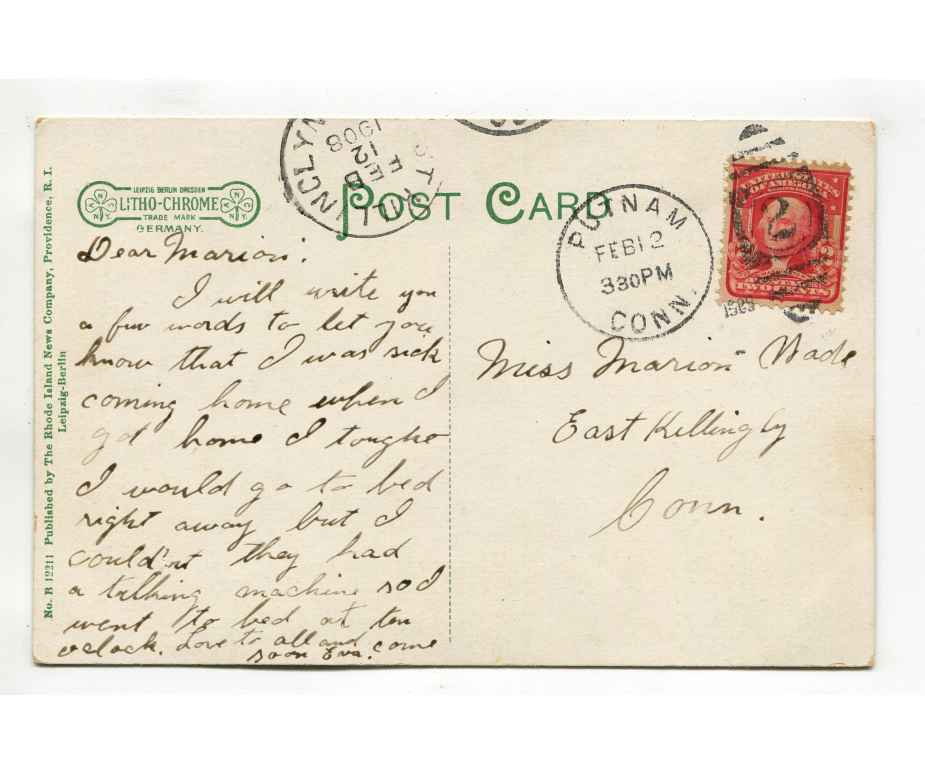 LEIPZIG BERLIN DRESDEN
LITHO-CHROME
TRADE MARK
GERMANY.
POST CARD
FEB
12
1908
PUTNAM
FEB 12
330PM
CONN.
UNITED STATES
OF AMERICA
2
2
TWO CENTS
No. B 12211 Published by The Rhode Island News Company, Providence, R. I.
Leipzig-Berlin
Dear Marion:
I will write you
a few words to let you
know that I was sick
coming home when I
got home I tought
I would go to bed
right away but I
could'nt they had
a talking machine so I
went to bed at ten
oclock. Love to all and come
soon Eva.
Miss Marion Wade
East Killingly
Conn.